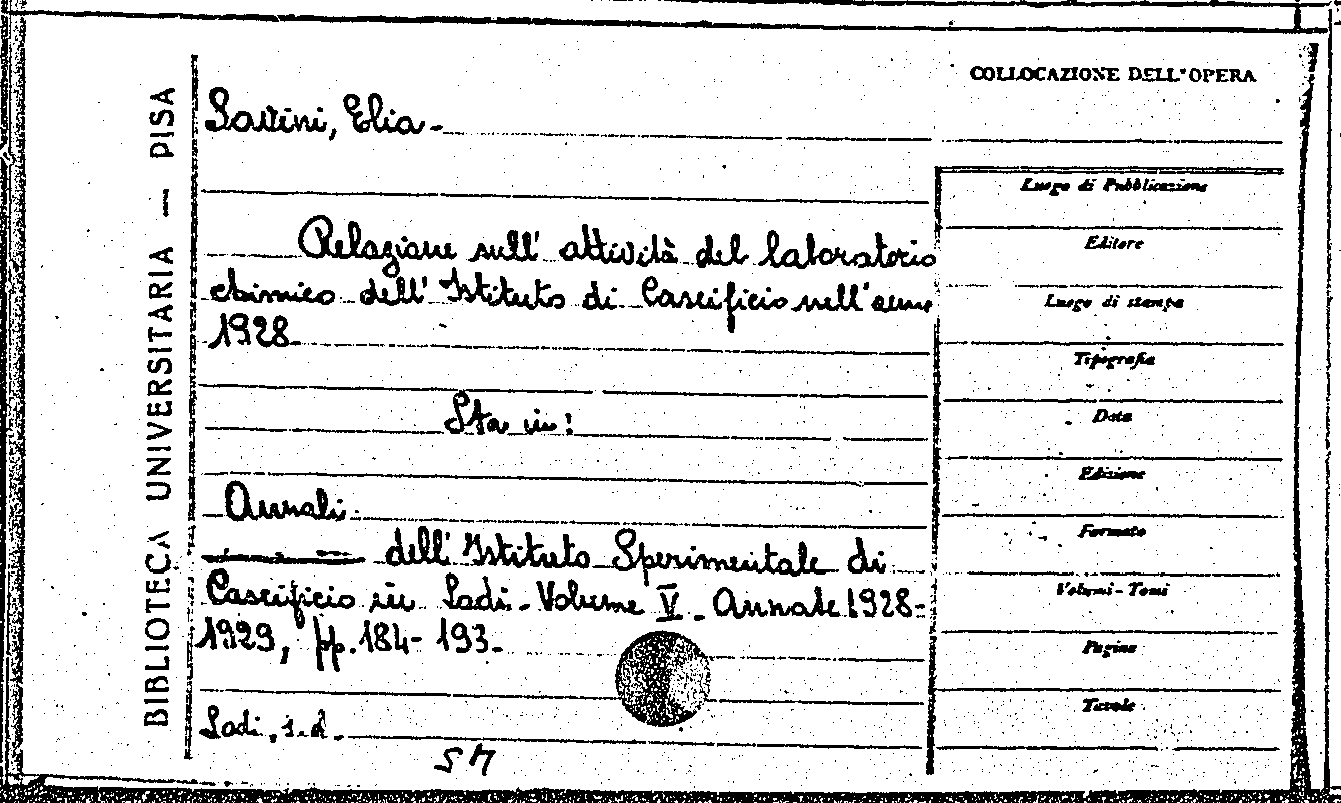 COLLOCAZIONE DELL'OPERA
BIBLIOTECA UNIVERSITARIA — PISA
Elia -
Relazione sull' attività del laboratorio
chimico dell' Istituto di Caseificio nell'anno
1928.
Sta in:
Annali
dell' Istituto Sperimentale di
Caseificio in Lodi - Volume V - Annate 1928-
1929, pp. 184-193.
Lodi, s.d.
Luogo di Pubblicazione
Editore
Luogo di stampa
Tipografia
Data
Edizione
Formato
Volumi - Tomi
Pagine
Tavole